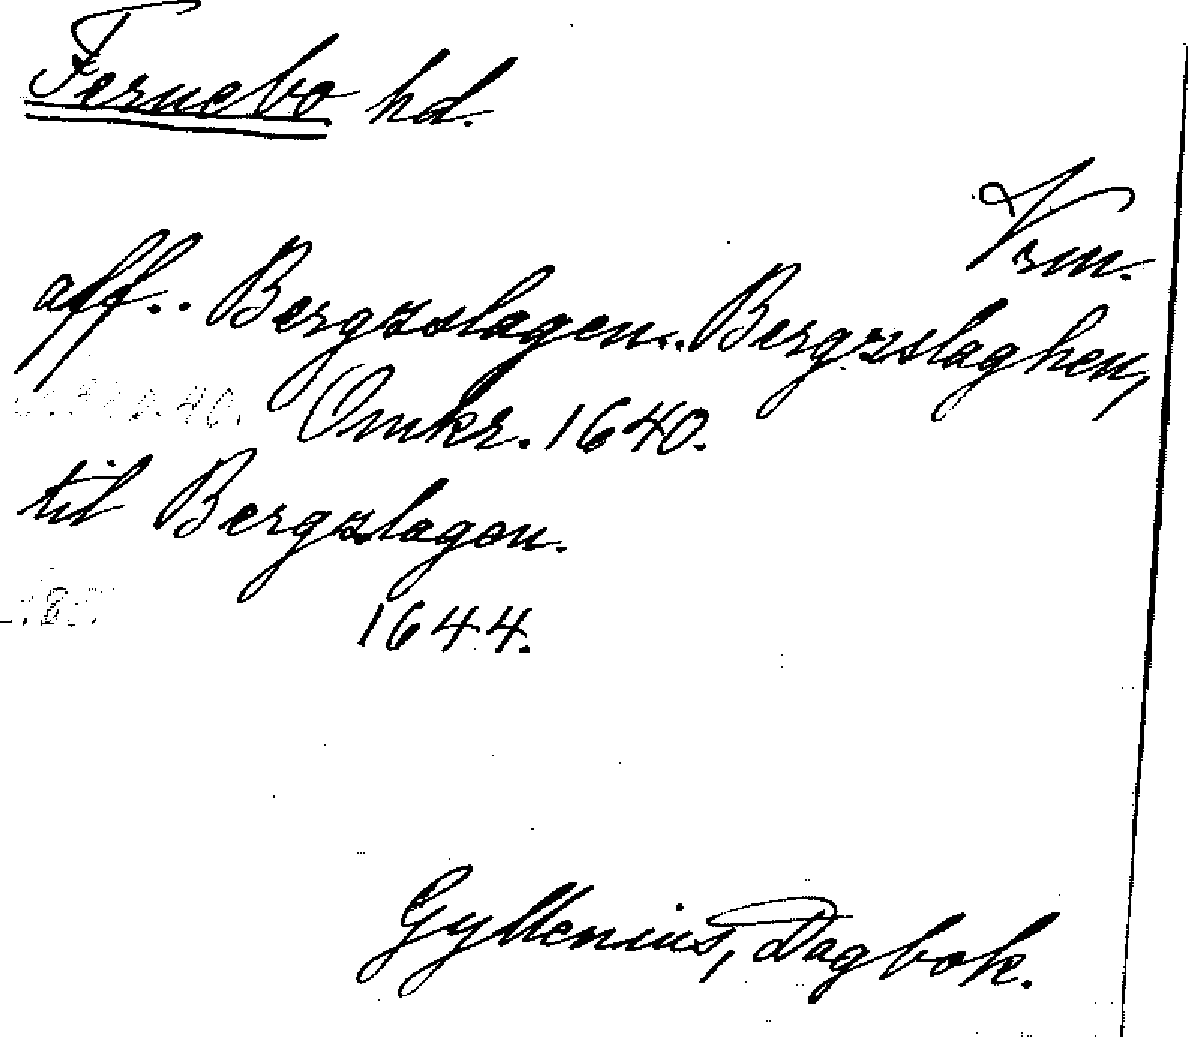 Fernebo hd.
Vrm.
aff.. Bergzslagen.. Bergzslaghen,
Omkr. 1640.
til Bergzlagen.
1644.
Gyllenius, Dagbok.